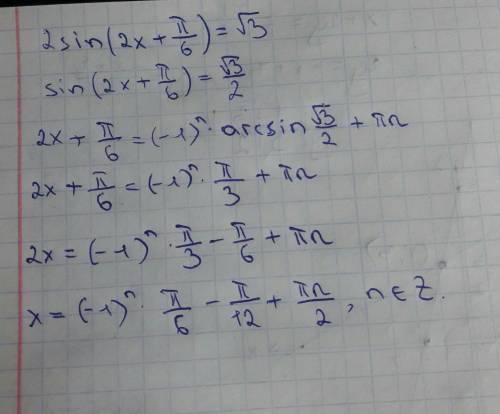 2sin(2x + π/6) = √3
sin(2x + π/6) = √3/2
2x + π/6 = (-1)ⁿ · arcsin √3/2 + πn
2x + π/6 = (-1)ⁿ · π/3 + πn
2x = (-1)ⁿ · π/3 - π/6 + πn
x = (-1)ⁿ · π/6 - π/12 + πn/2, n ∈ Z.